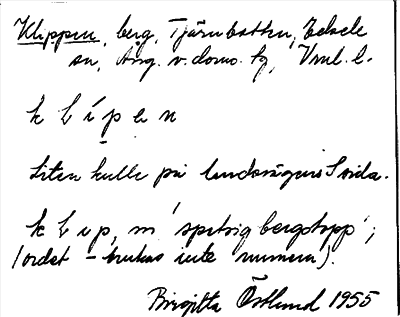 Klippen, berg, Tjärnbotten, Edsele
sn, Ång. v. doms. tg, Vnl. l.
k l i p e n
Liten kulle på landsvägens sida.
k l i p, m 'spetsig bergstopp';
(ordet - brukas inte numera).
Birgitta Östlund 1955